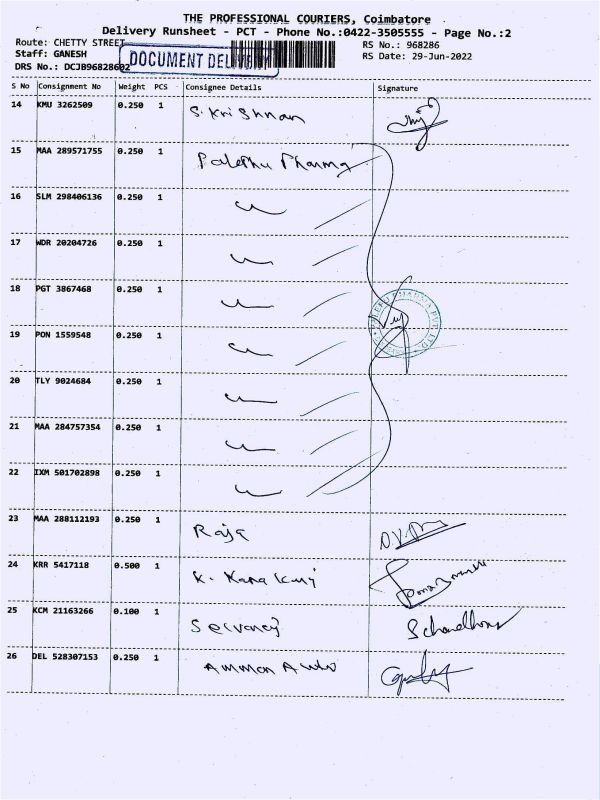 THE PROFESSIONAL COURIERS, Coimbatore
Delivery Runsheet - PCT - Phone No.:0422-3505555 - Page No.:2
Route: CHETTY STREET
Staff: GANESH
DRS No.: DCJB96828602
DOCUMENT DELIVERY
RS No.: 968286
RS Date: 29-Jun-2022
S No Consignment No Weight PCS Consignee Details Signature
14 KMU 3262509 0.250 1 S. Krishnan
15 MAA 289571755 0.250 1 Palepu Pharma
16 SLM 298406136 0.250 1
17 WDR 20204726 0.250 1
18 PGT 3867468 0.250 1
19 PON 1559548 0.250 1
20 TLY 9024684 0.250 1
21 MAA 284757354 0.250 1
22 IXM 501702898 0.250 1
23 MAA 288112193 0.250 1 Raja
24 KRR 5417118 0.500 1 K.
25 KCM 21163266 0.100 1
26 DEL 528307153 0.250 1 Amman Auto